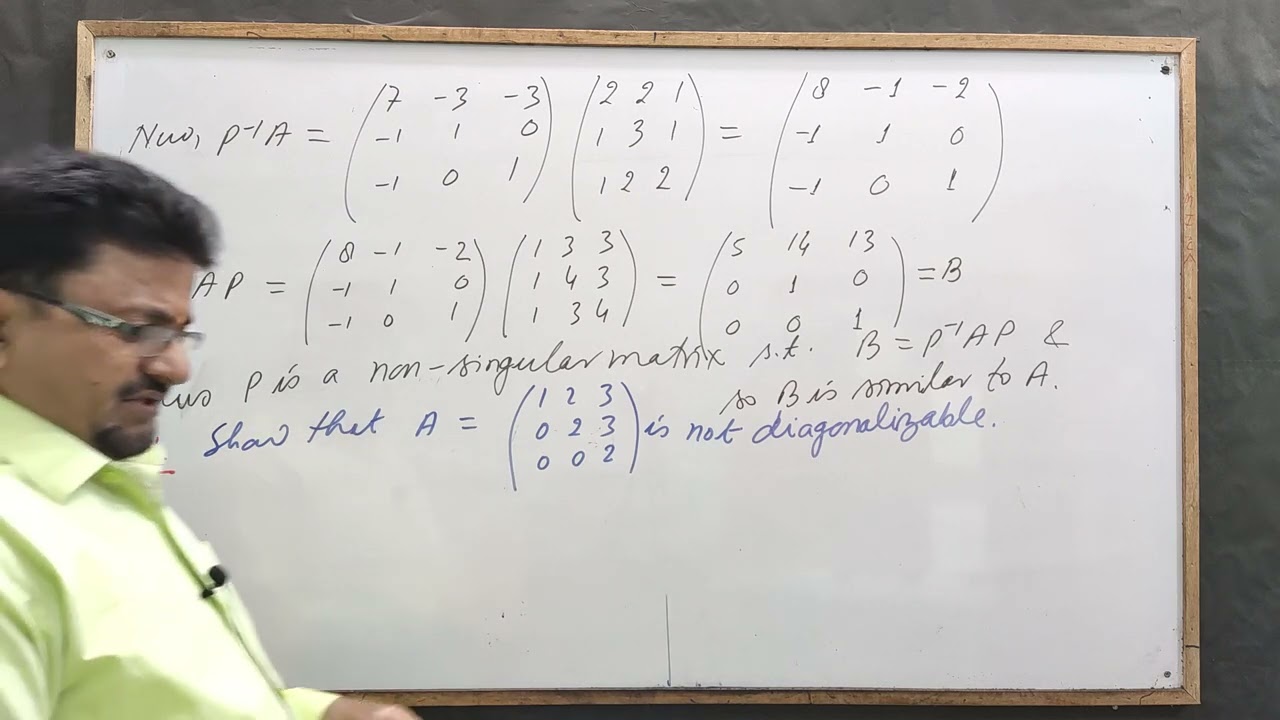 Now, P⁻¹A = (7 -3 -3; -1 1 0; -1 0 1) (2 2 1; 1 3 1; 1 2 2) = (8 -1 -2; -1 1 0; -1 0 1)
AP = (8 -1 -2; -1 1 0; -1 0 1) (1 3 3; 1 4 3; 1 3 4) = (5 14 13; 0 1 0; 0 0 1) = B
P is a non-singular matrix s.t. B = P⁻¹AP &
so B is similar to A.
Show that A = (1 2 3; 0 2 3; 0 0 2) is not diagonalizable.